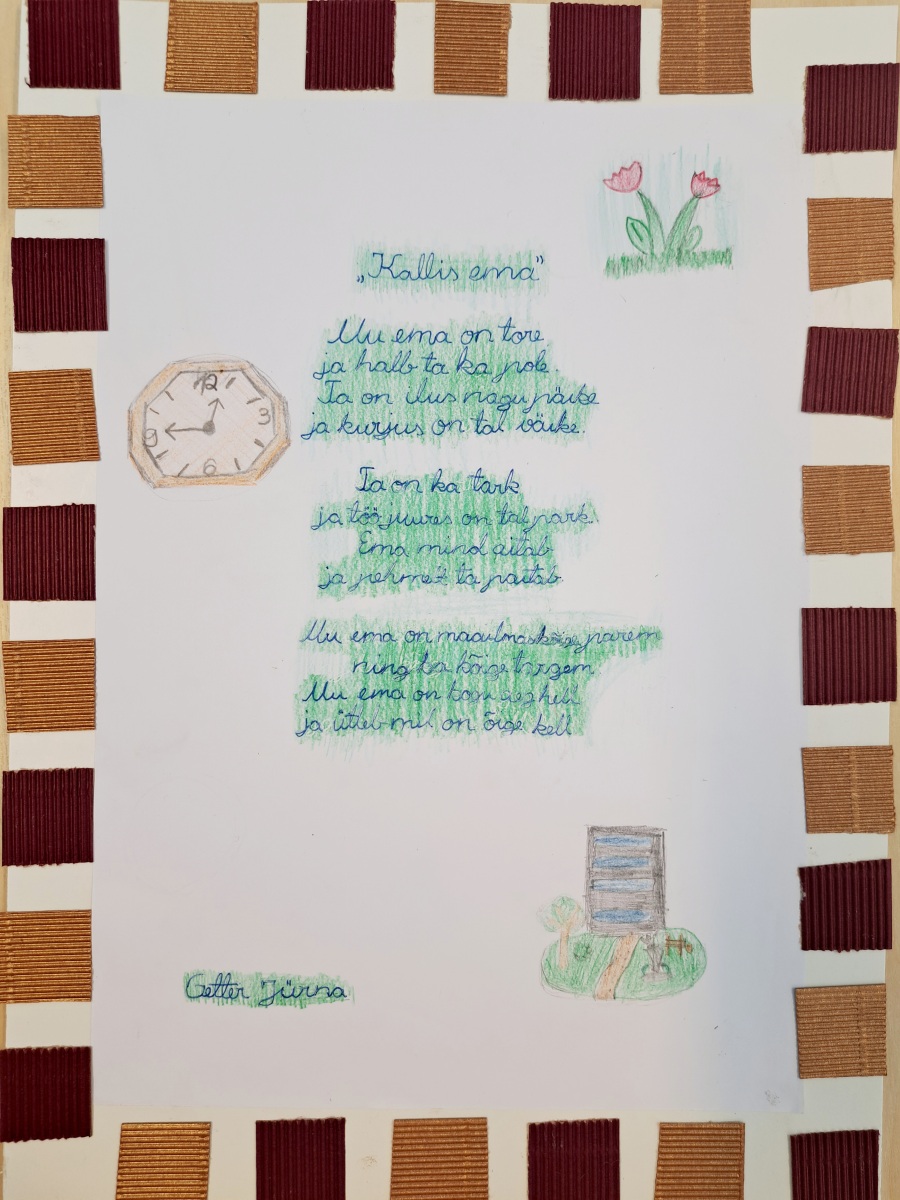 „Kallis ema"
Mu ema on tore
ja halb ta ka pole.
Ta on ilus nagu päike
ja kurjus on tal väike.
12
3
9
6
Ta on ka tark
ja töö juures on tal park.
Ema mind aitab
ja pehmelt ta paitab.
Mu ema on maailma kõige parem
ning ka kõige targem
Mu ema on hell
ja ütleb mil on õige kell
Getter Jürna